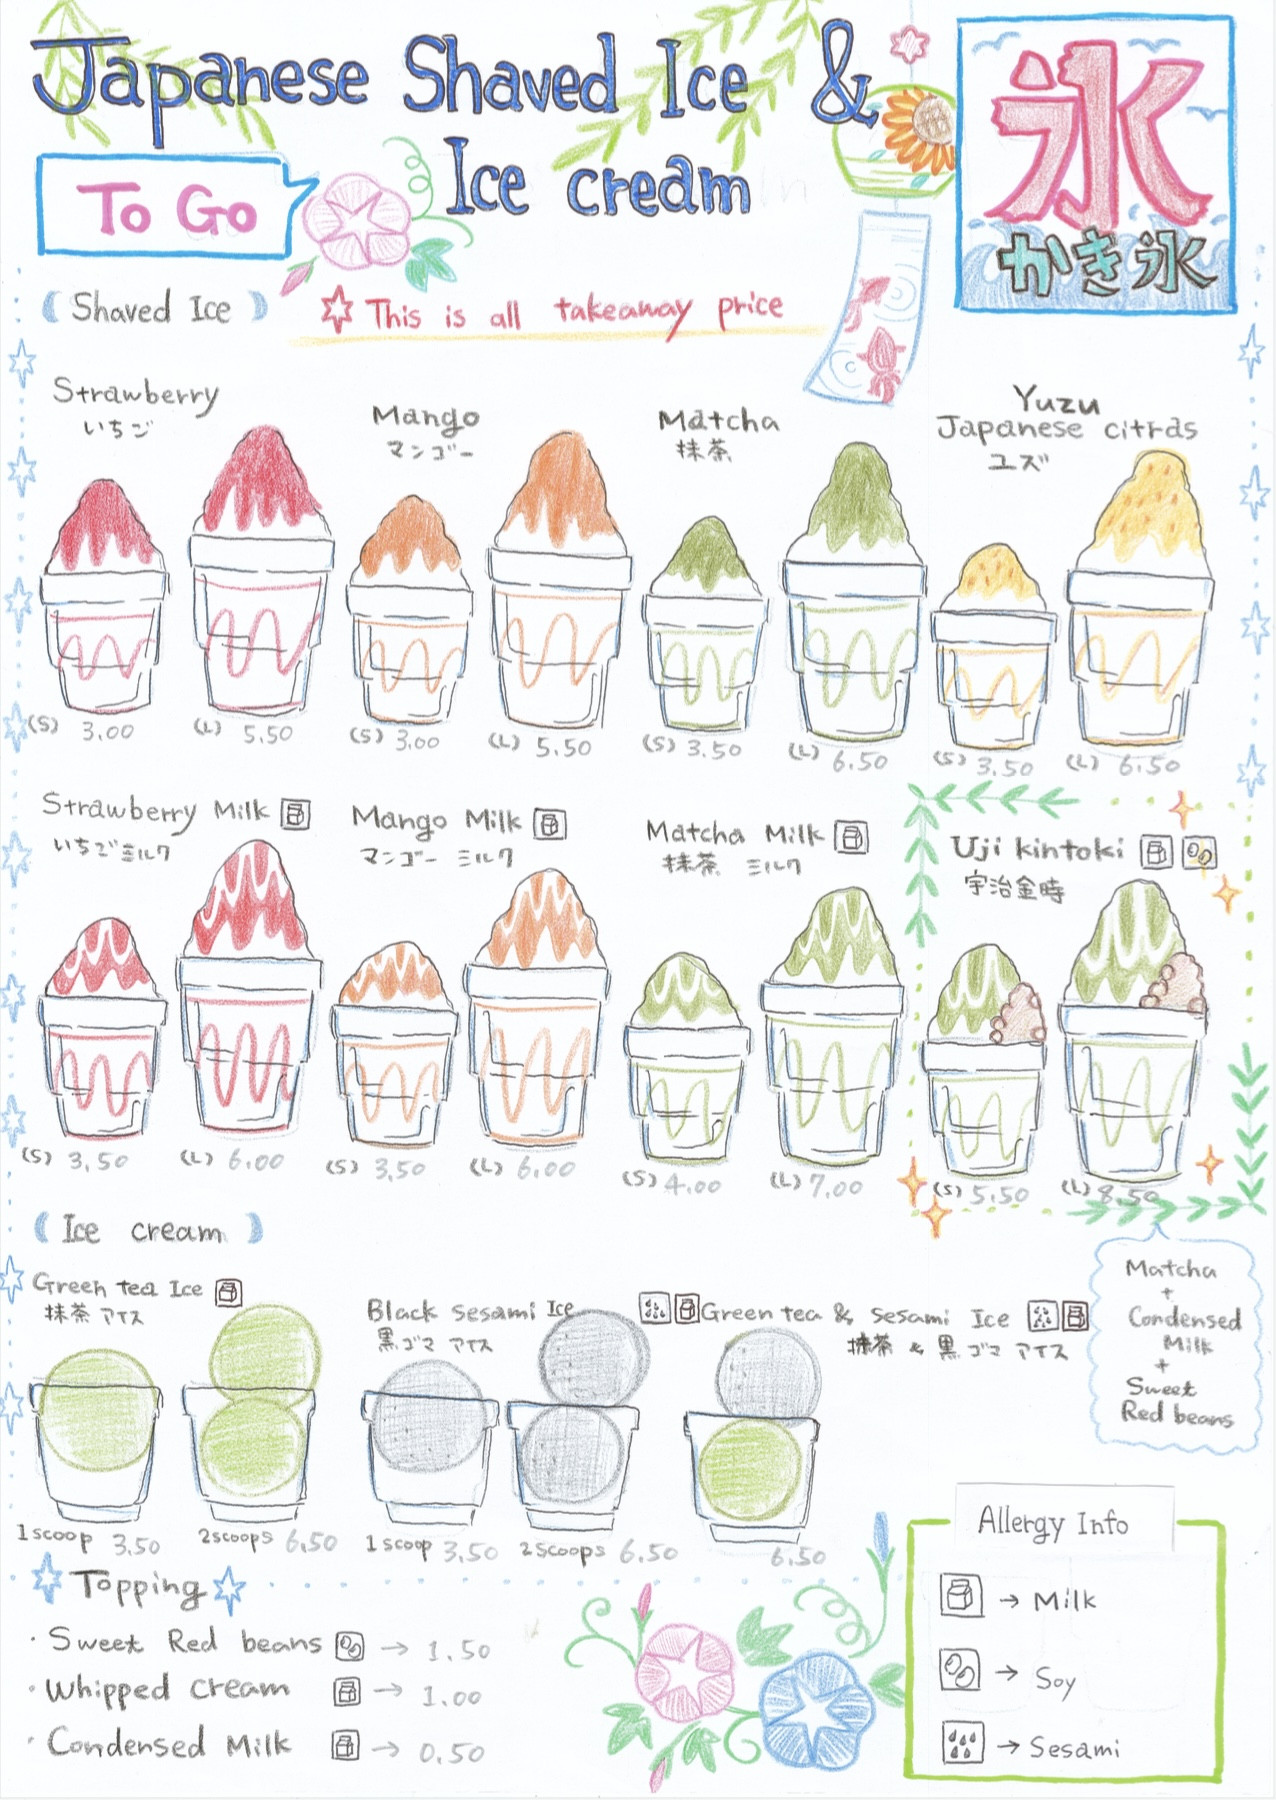 Japanese Shaved Ice &
Ice cream
To Go
氷
かき氷
Shaved Ice
This is all takeaway price
Strawberry
いちご
(S) 3.00
(L) 5.50
Mango
マンゴー
(S) 3.00
(L) 5.50
Matcha
抹茶
(S) 3.50
(L) 6.50
Yuzu
Japanese citras
ユズ
(S) 3.50
(L) 6.50
Strawberry Milk
いちごミルク
(S) 3.50
(L) 6.00
Mango Milk
マンゴー ミルク
(S) 3.50
(L) 6.00
Matcha Milk
抹茶 ミルク
(S) 4.00
(L) 7.00
Uji kintoki
宇治金時
(S) 5.50
(L) 8.50
Matcha
+
Condensed
Milk
+
Sweet
Red beans
Ice cream
Green tea Ice
抹茶 アイス
1scoop 3.50
2scoops 6.50
Black sesami Ice
黒ゴマ アイス
1scoop 3.50
2scoops 6.50
Green tea & sesami Ice
抹茶 & 黒ゴマ アイス
6.50
Topping
・Sweet Red beans → 1.50
・Whipped cream → 1.00
・Condensed Milk → 0.50
Allergy Info
→ Milk
→ Soy
→ Sesami